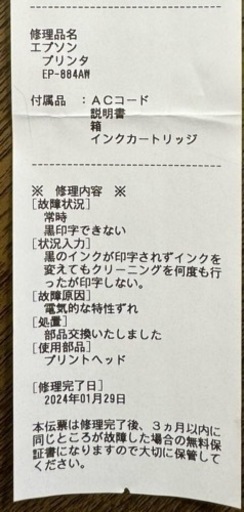 修理品名
エプソン
プリンタ
EP-884AW
付属品 : ACコード
説明書
箱
インクカートリッジ
※ 修理内容 ※
[故障状況]
常時
黒印字できない
[状況入力]
黒のインクが印字されずインクを
変えてもクリーニングを何度も行
ったが印字しない。
[故障原因]
電気的な特性ずれ
[処置]
部品交換いたしました
[使用部品]
プリントヘッド
[修理完了日]
2024年01月29日
本伝票は修理完了後、3ヵ月以内に
同じところが故障した場合の無料保
証書になりますので大切に保管して
ください。